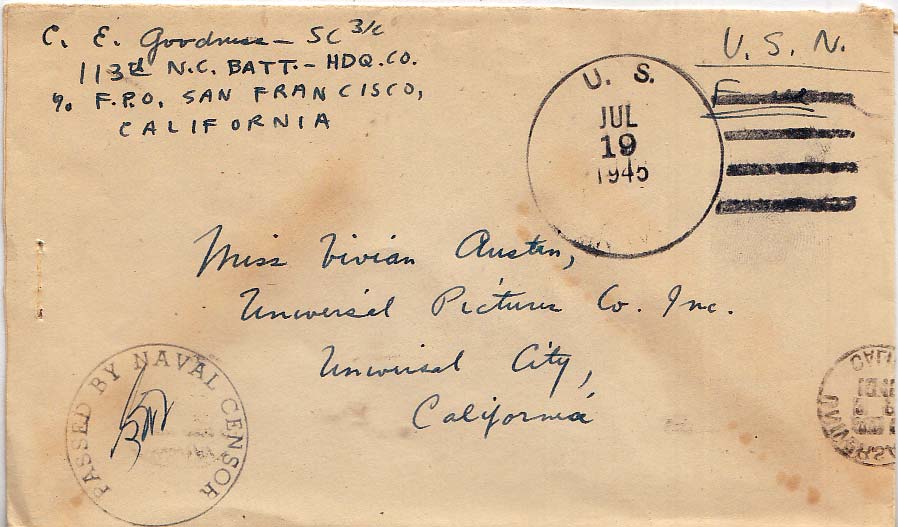 C. E. Goodness - SC 3/c
113th N.C. BATT. - HDQ. CO.
℅ F.P.O. SAN FRANCISCO,
CALIFORNIA
U. S. N.
Free
U. S.
JUL
19
1945
Miss Vivian Austin,
Universal Pictures Co. Inc.
Universal City,
California
PASSED BY NAVAL CENSOR